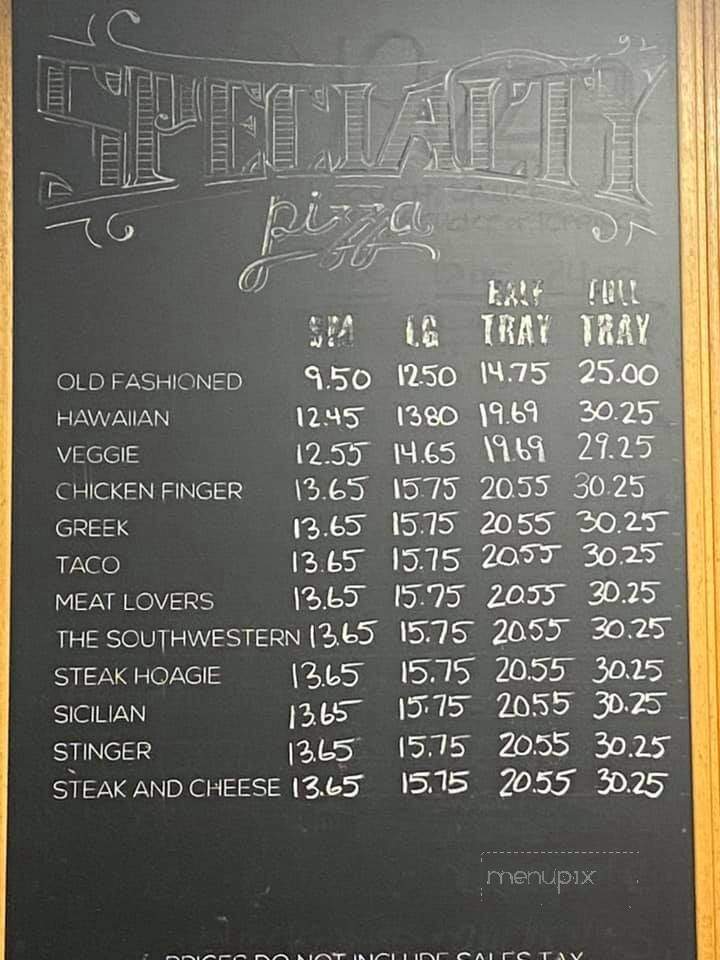 SPECIALTY
pizza
HALF FULL
SM LG TRAY TRAY
OLD FASHIONED 9.50 12.50 14.75 25.00
HAWAIIAN 12.45 13.80 19.69 30.25
VEGGIE 12.55 14.65 19.69 29.25
CHICKEN FINGER 13.65 15.75 20.55 30.25
GREEK 13.65 15.75 20.55 30.25
TACO 13.65 15.75 20.55 30.25
MEAT LOVERS 13.65 15.75 20.55 30.25
THE SOUTHWESTERN 13.65 15.75 20.55 30.25
STEAK HOAGIE 13.65 15.75 20.55 30.25
SICILIAN 13.65 15.75 20.55 30.25
STINGER 13.65 15.75 20.55 30.25
STEAK AND CHEESE 13.65 15.75 20.55 30.25
menupix
PRICES DO NOT INCLUDE SALES TAX